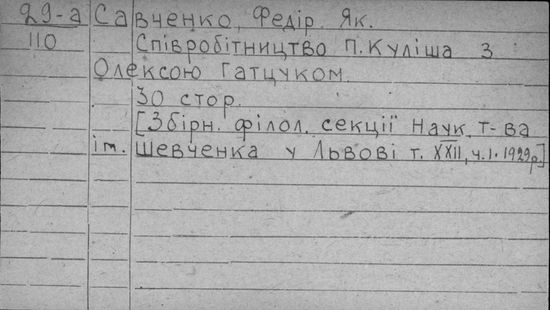 29-а Савченко, Федір Як.
110 Співробітництво П. Куліша з
Олексою Гатцуком.
30 стор.
[Збірн. філол. секції Наук. т-ва
ім. Шевченка у Львові т. XXII, ч. I. 1929р]